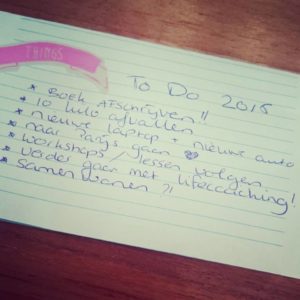 THINGS
To Do 2015
* Boek afschrijven!!
* 10 kilo afvallen
* nieuwe laptop + nieuwe auto
* naar Parijs gaan ♥
* workshops / lessen volgen
* Verder gaan met lifecoaching!
* Samenwonen?!